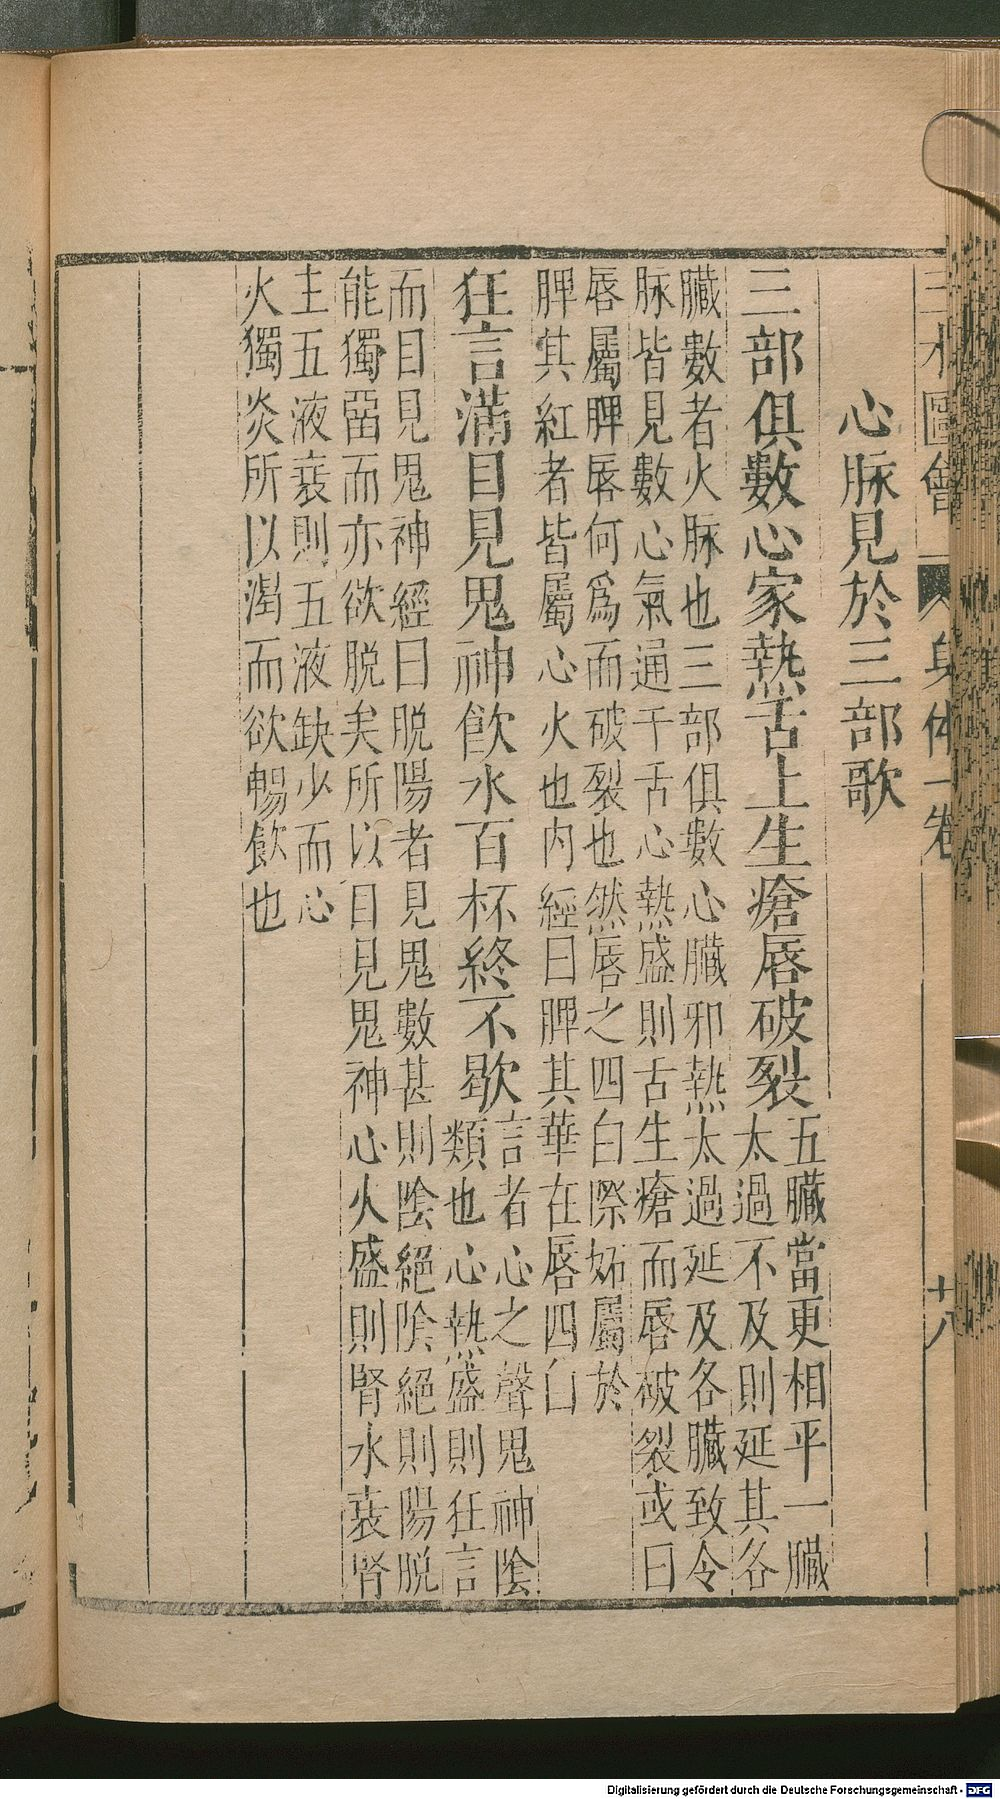 三才圖會 身体一卷 廿八
心脉見於三部歌
三部俱數心家熱舌上生瘡唇破裂
五臟當更相平一臟
太過不及則延其各
臟數者火脉也三部俱數心臟邪熱太過延及各臟致令
脉皆見數心氣通于舌心熱盛則舌生瘡而唇破裂或曰
唇屬脾唇何爲而破裂也然唇之四白際始屬於
脾其紅者皆屬心火也内經曰脾其華在唇四白
狂言滿目見鬼神飲水百杯終不歇
言者心之聲鬼神陰
類也心熱盛則狂言
而目見鬼神經曰脱陽者見鬼數甚則陰絕陰絕則陽脱
能獨畱而亦欲脱矣所以目見鬼神心火盛則腎水衰腎
主五液衰則五液缺少而心
火獨炎所以渴而欲暢飲也
Digitalisierung gefördert durch die Deutsche Forschungsgemeinschaft - DFG